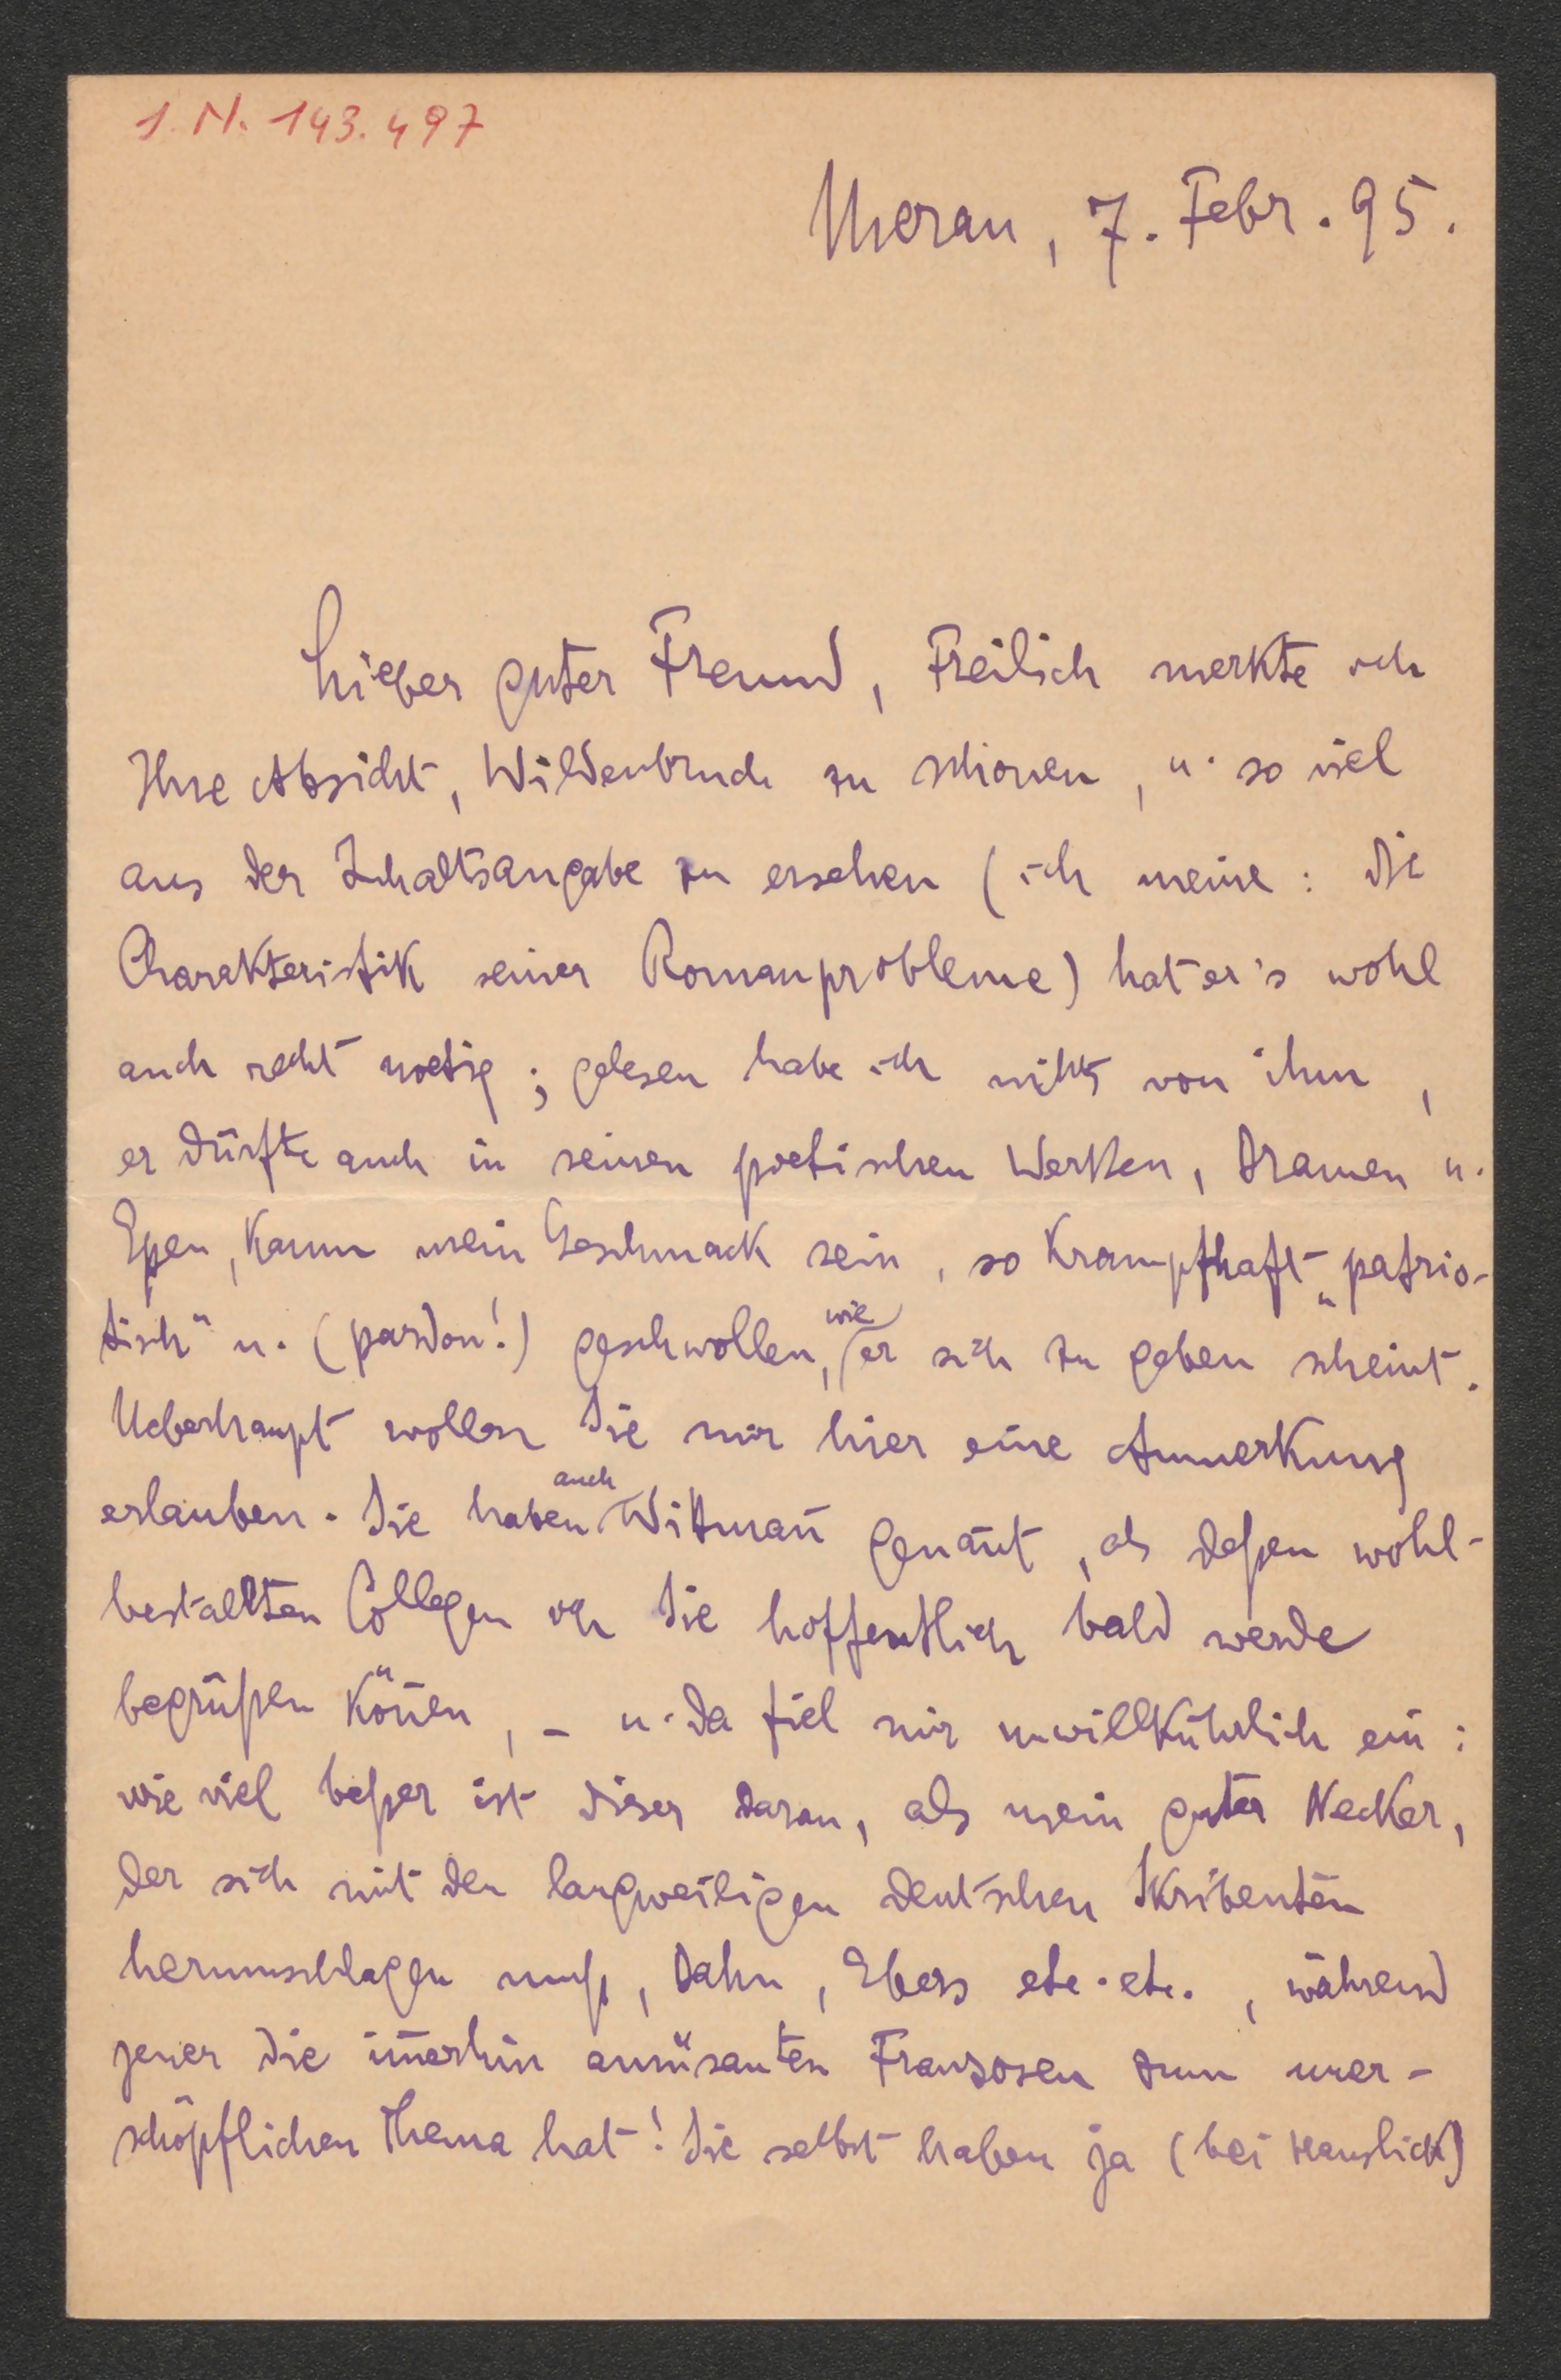 I. N. 143.497
Meran, 7. Febr. 95.
Lieber guter Freund, Freilich merkte ich
Ihre Absicht, Wildenbruch zu schonen, u. so viel
aus der Inhaltsangabe zu ersehen (ich meine: die
Charakteristik seiner Romanprobleme) hat er's wohl
auch recht noetig; gelesen habe ich nichts von ihm,
er dürfte auch in seinen poetischen Werken, Dramen u.
Epen, kaum mein Geschmack sein, so krampfhaft „patrio-
tisch“ u. (pardon!) geschwollen, wie er sich zu geben scheint.
Ueberhaupt wollen Sie mir hier eine Anmerkung
erlauben. Sie haben auch Wittmañ genañt, als deßen wohl-
bestallten Collegen ich Sie hoffentlich bald werde
begrüßen köñen, – u. da fiel mir unwillkührlich ein:
wie viel beßer ist dieser daran, als mein guter Necker,
der sich mit den langweiligen deutschen Skribenten
herumschlagen muß, Dahn, Ebers etc. etc., während
jener die im̄erhin amüsanten Franzosen zum uner-
schöpflichen Thema hat! Sie selbst haben ja (bei Hanslick)